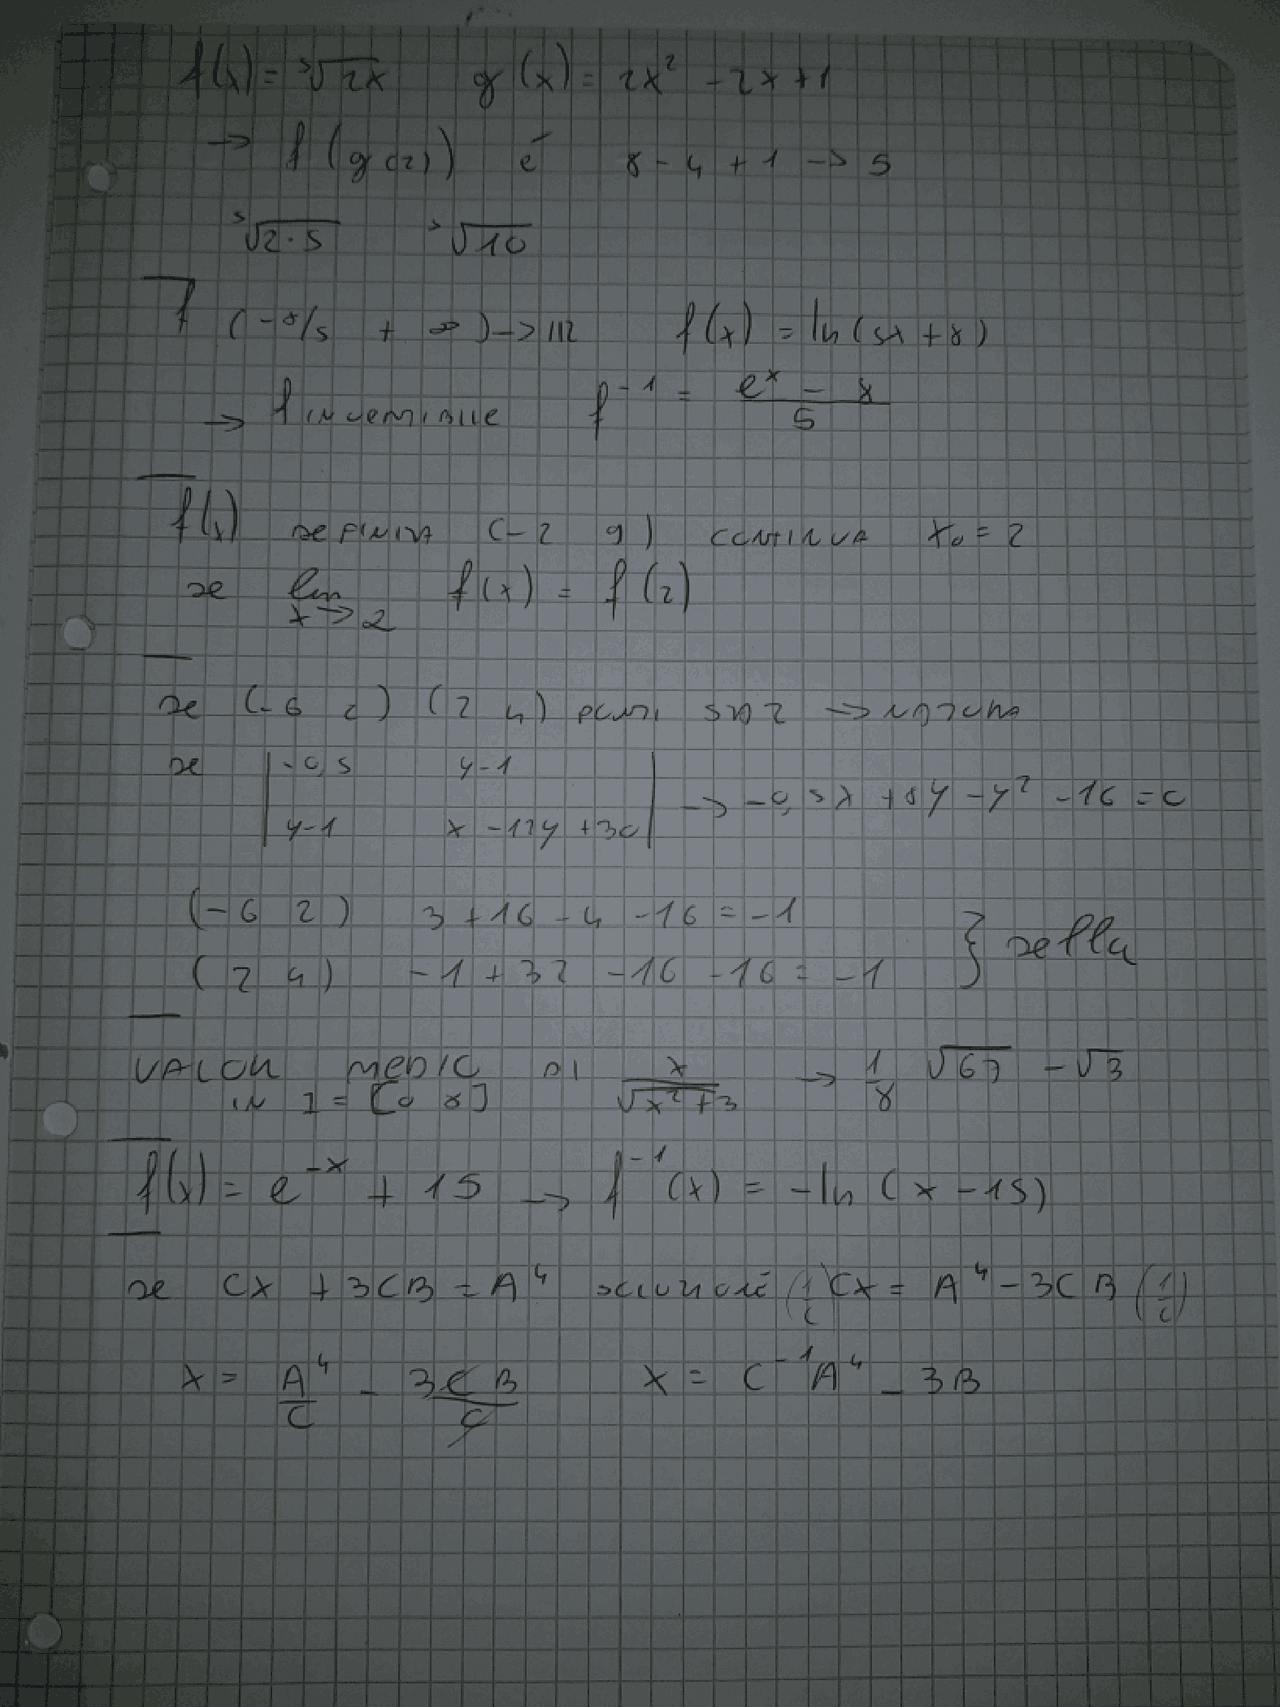 f(x) = ³√2x g(x) = 2x² - 2x + 1
→ f(g(2)) é 8 - 4 + 1 → 5
³√2·5 ³√10
f (-8/5 + ∞) → IR f(x) = ln(5x + 8)
→ f invertibile f⁻¹ = (e^x - 8)/5
f(x) definita (-2 9) continua x₀ = 2
se lim x→2 f(x) = f(2)
se (-6 2) (2 4) punti →
se | -0,5 y-1 |
| y-1 x - 12y + 30 | → -0,5x + 8y - y² - 16 = 0
(-6 2) 3 + 16 - 4 - 16 = -1
(2 4) -1 + 32 - 16 - 16 = -1 } sella
VALOR MEDIO DI x/√x²+3 → 1/8 √67 - √3
IN I = [0 8]
f(x) = e^-x + 15 → f⁻¹(x) = -ln(x - 15)
se CX + 3CB = A⁴ soluzioné (1/C) CX = A⁴ - 3CB (1/C)
X = A⁴/C - 3CB/C X = C⁻¹A⁴ - 3B